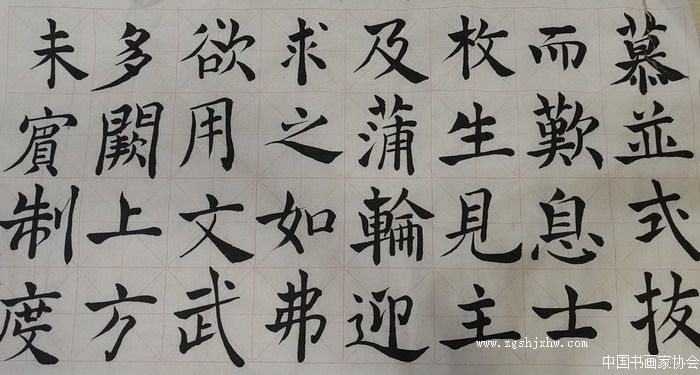 慕並式拔
而歎息士
枚生見主
及蒲輪迎
求之如弗
欲用文武
多闕上方
未賓制度
www.zgshjxhw.com
中国书画家协会